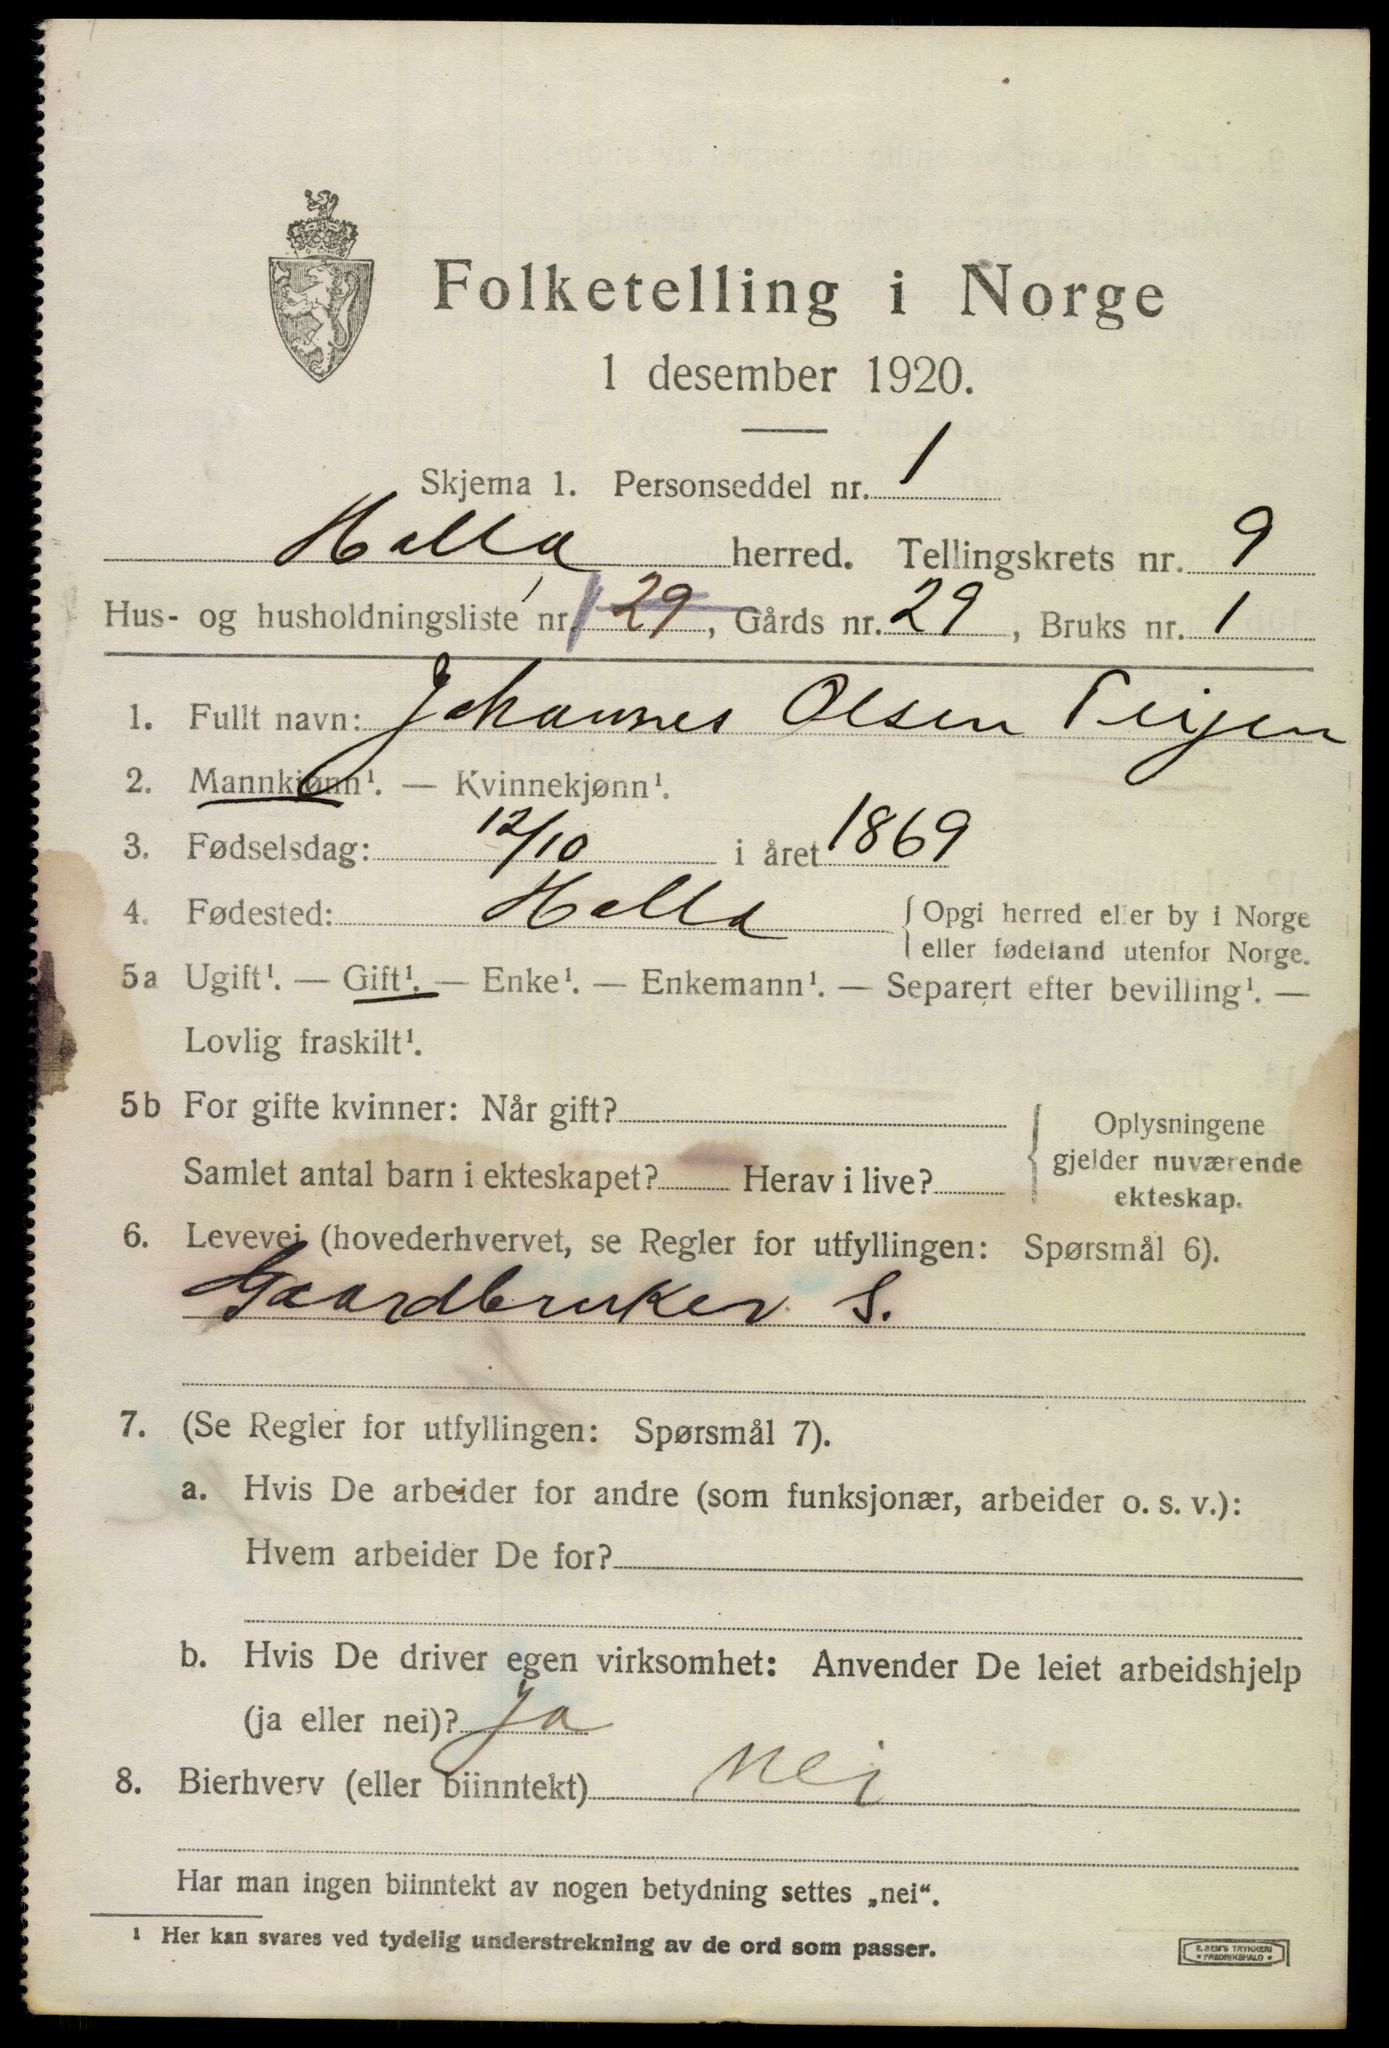 Folketelling i Norge
1 desember 1920.
Skjema 1. Personseddel nr. 1
Holla herred. Tellingskrets nr. 9
Hus- og husholdningsliste nr. 1 29, Gårds nr. 29, Bruks nr. 1
1. Fullt navn: Johannes Olsen Teijen
2. Mannkjønn¹. — Kvinnekjønn¹.
3. Fødselsdag: 12/10 i året 1869
4. Fødested: Holla { Opgi herred eller by i Norge
eller fødeland utenfor Norge.
5a Ugift¹. — Gift¹. — Enke¹. — Enkemann¹. — Separert efter bevilling¹. —
Lovlig fraskilt¹.
5b For gifte kvinner: Når gift?
Samlet antal barn i ekteskapet? Herav i live?
{ Oplysningene
gjelder nuværende
ekteskap.
6. Levevei (hovederhvervet, se Regler for utfyllingen: Spørsmål 6).
Gaardbruker S.
7. (Se Regler for utfyllingen: Spørsmål 7).
a. Hvis De arbeider for andre (som funksjonær, arbeider o. s. v.):
Hvem arbeider De for?
b. Hvis De driver egen virksomhet: Anvender De leiet arbeidshjelp
(ja eller nei)? Ja
8. Bierhverv (eller biinntekt) nei
Har man ingen biinntekt av nogen betydning settes „nei“.
¹ Her kan svares ved tydelig understrekning av de ord som passer.
E. SEM'S TRYKKERI
• FREDRIKSHALD •